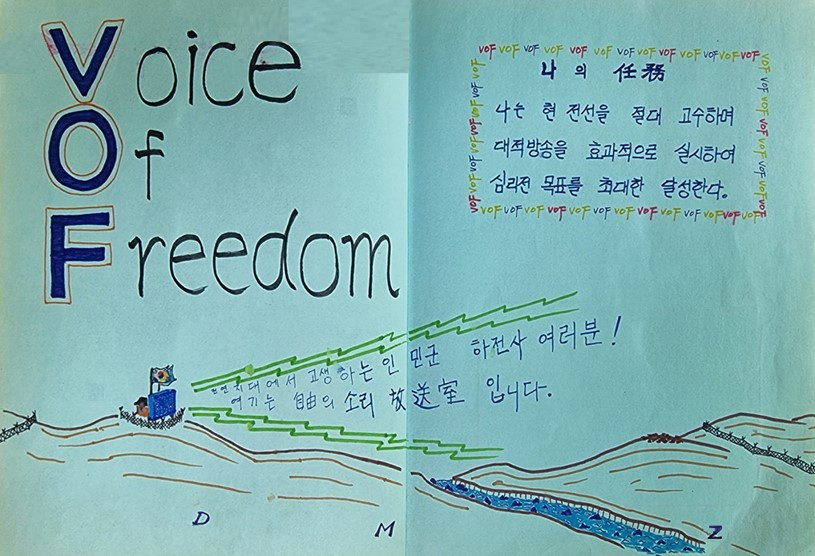 Voice
Of
Freedom
VOF VOF VOF VOF VOF VOF VOF VOF VOF VOF VOF VOF VOF
나의 任務
나는 현 전선을 절대 고수하며
대적방송을 효과적으로 실시하여
심리전 목표를 최대한 달성한다.
VOF VOF VOF VOF VOF VOF VOF VOF VOF VOF VOF VOF VOF
지대에서 고생하는 인민군 하전사 여러분!
여기는 自由의 소리 放送室 입니다.
D M Z